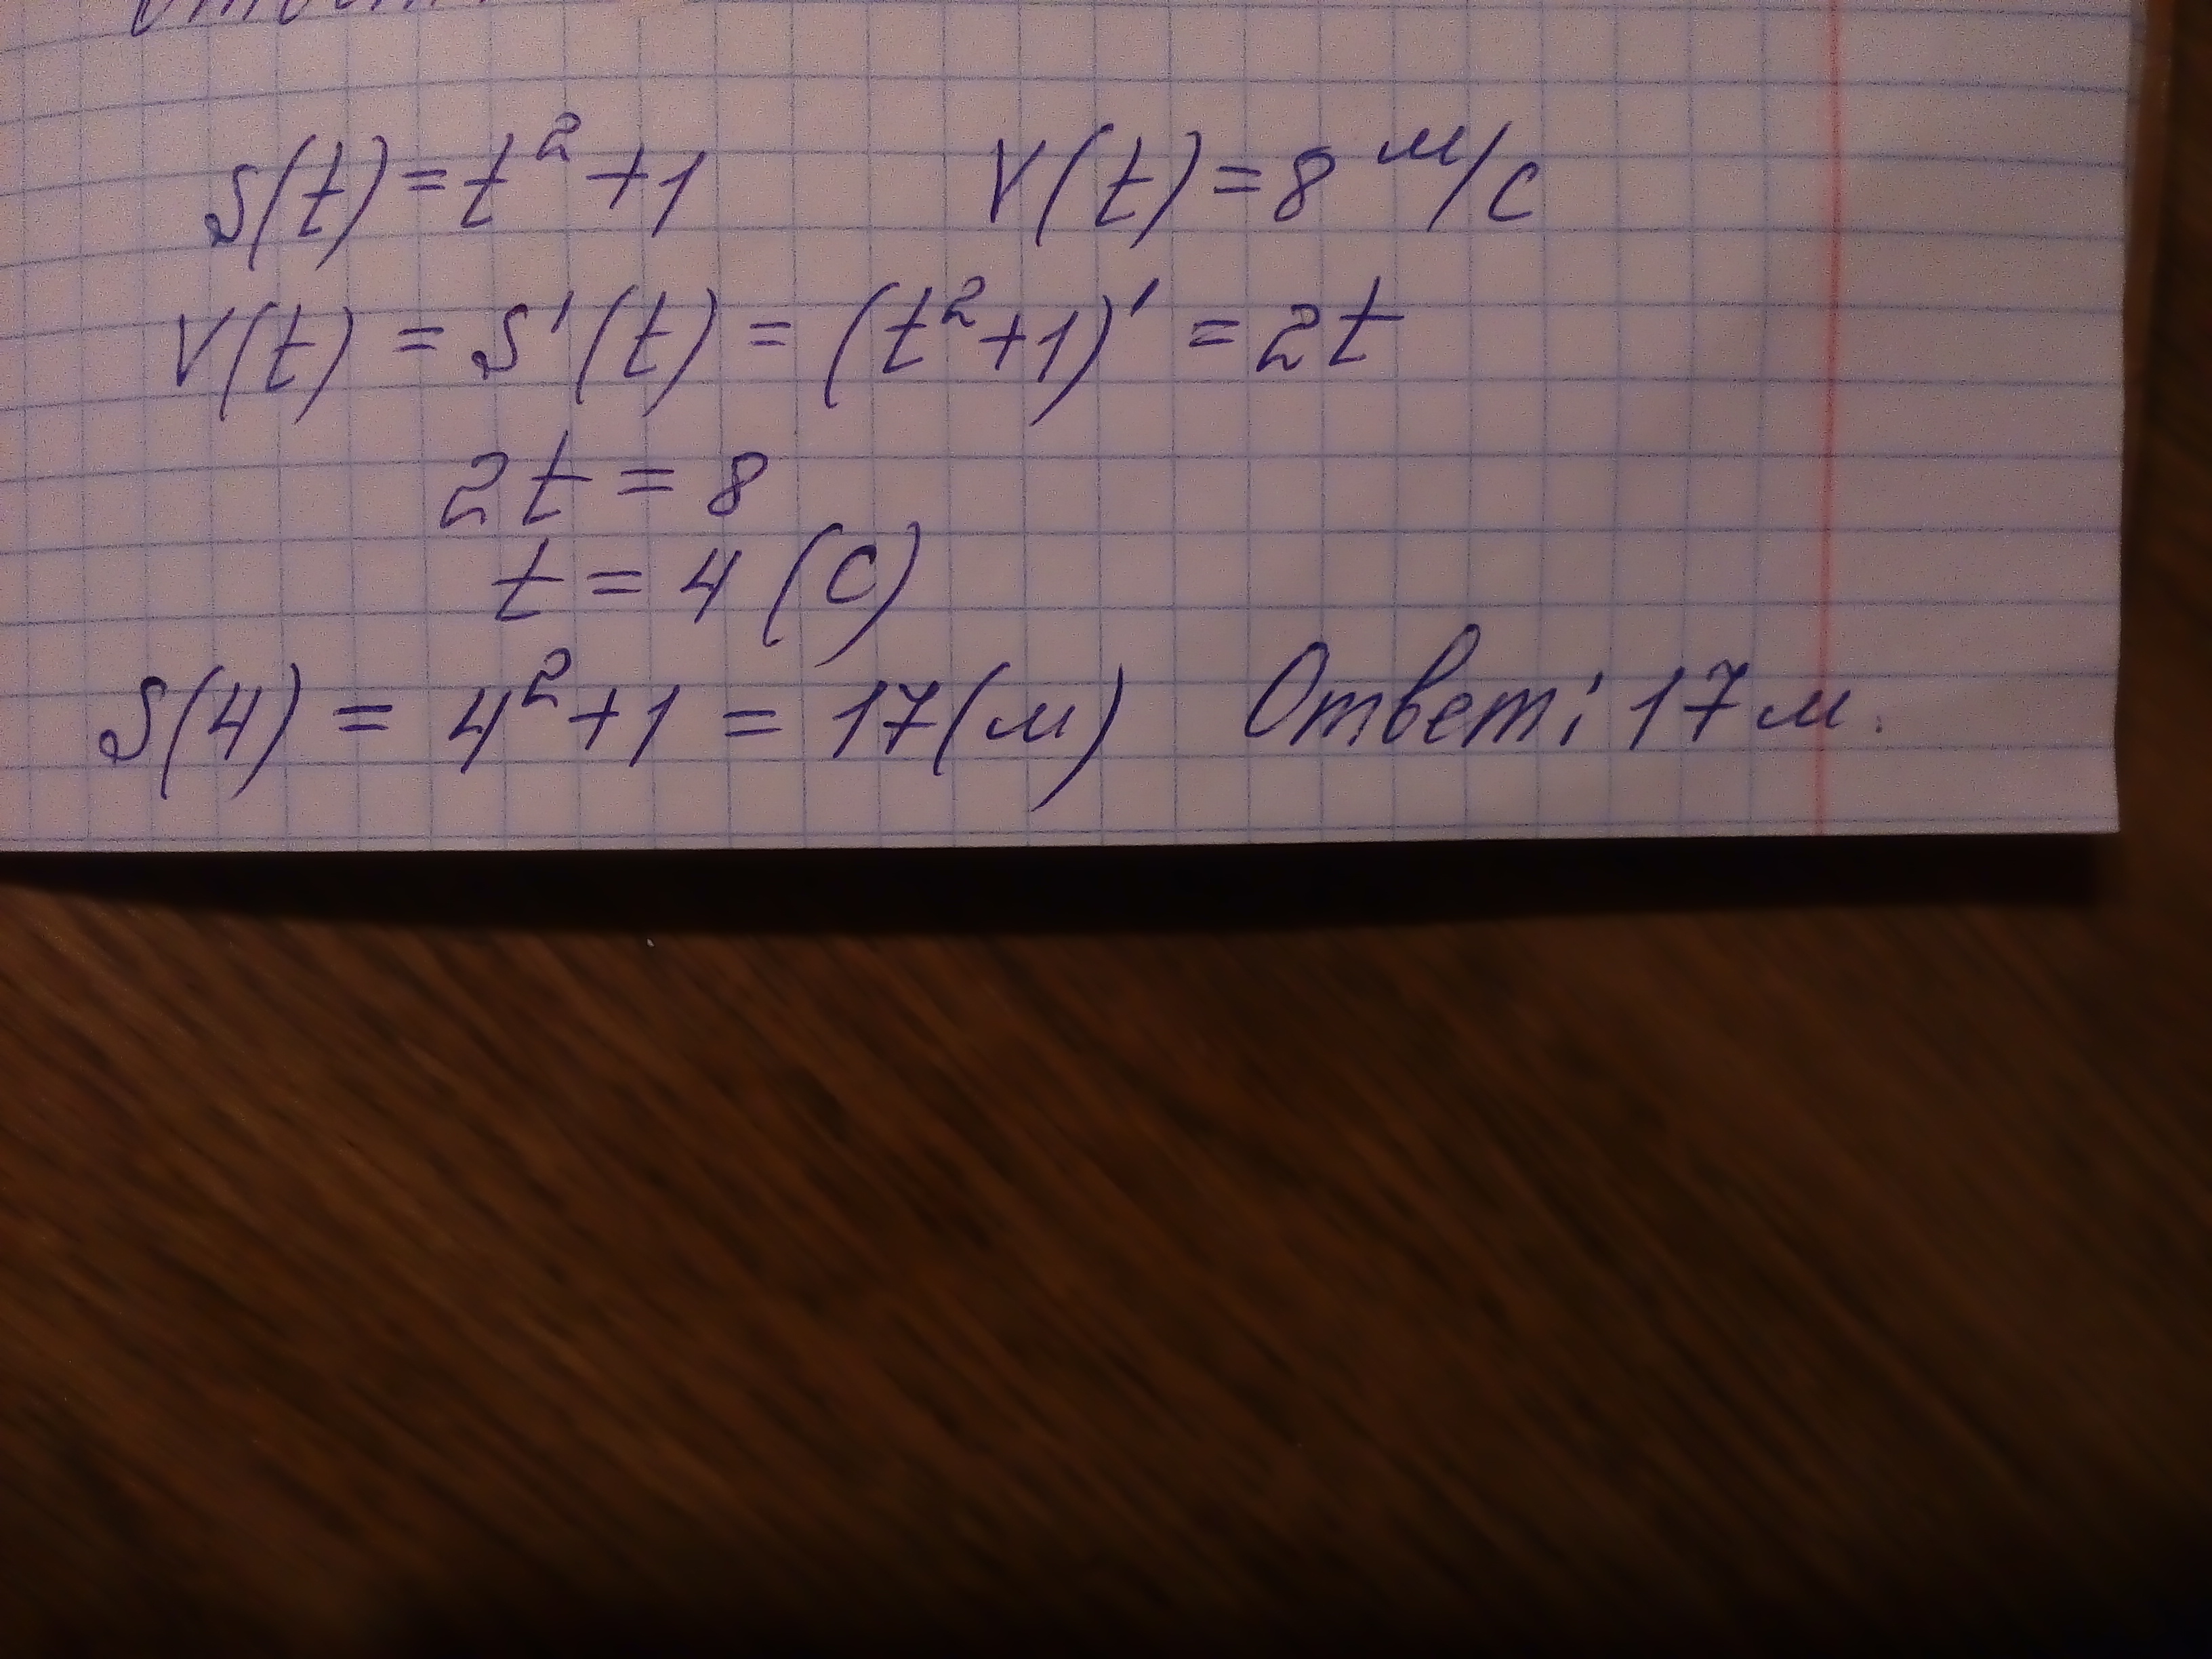 S(t)=t²+1 V(t)=8 м/с
V(t) = S'(t) = (t²+1)' = 2t
2t = 8
t = 4 (с)
S(4) = 4²+1 = 17(м) Ответ: 17 м.